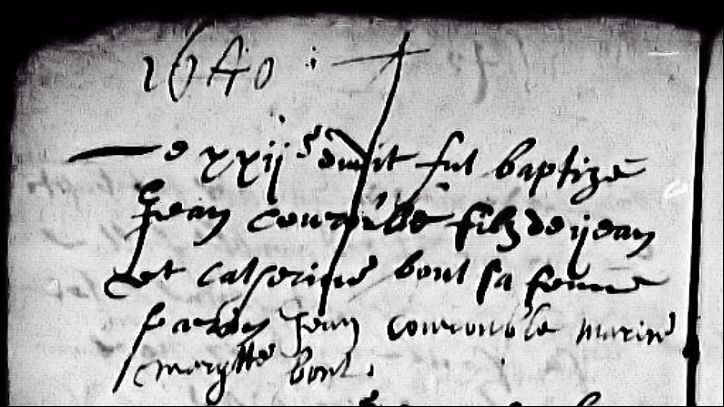 1640 :
Le xxij dudit fut baptizé
Jean couroúble filz de jean
et catherine bout sa femme
parrin Jean courouble marine
margtte bout .